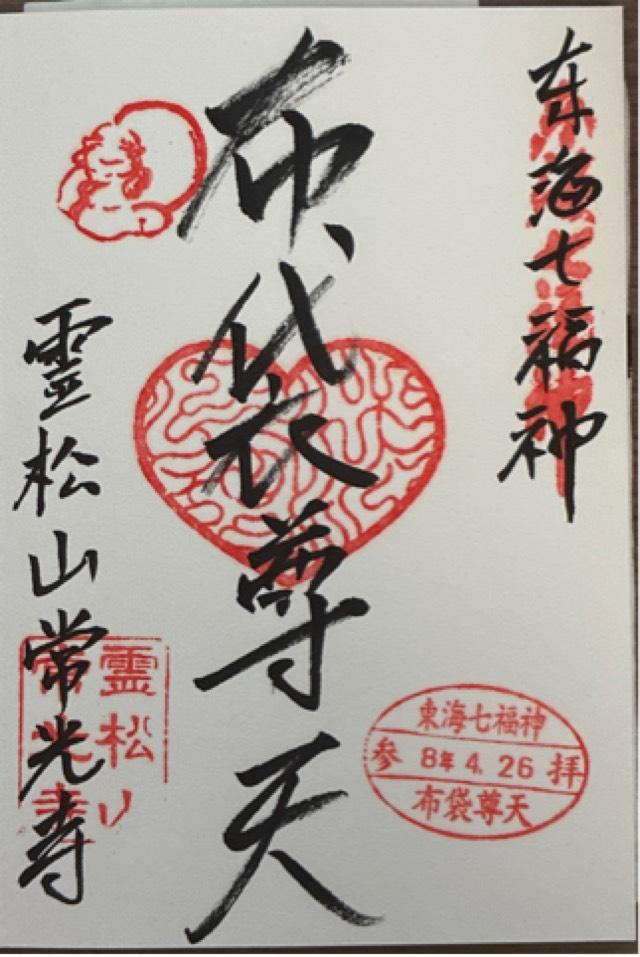 东海七福神
布袋尊天
霊松山常光寺
霊松
東海七福神
参拝
8年 4. 26
布袋尊天